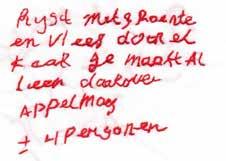 Ryst met groente
en vlees door el
kaar ge maakt Al
leen daarover
APPelmoes
± 4 Personen